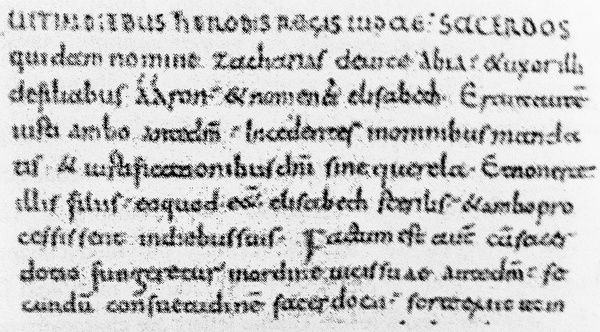 UIT IN DIEBUS hERODIS REGIS IUDAE· SACERDOS
quidam nomine zacharias deuice Abia· & uxor illi
defiliabus AAron· & nomen ei elisabeth· Erantautē
iusti ambo antedm̄· Incedentes inomnibus manda
tis· & iustificationibus dn̄i sine querela· Et nonerat
illis filius· eoquod eēt elisabeth sterilis· & ambo pro
cessissent indiebus suis· Factum est aut̄ cū sacer
dotio fungeretur inordine uicis suae antedm̄· se
cundū consuetudinē sacerdotii· sorte exiit ut in